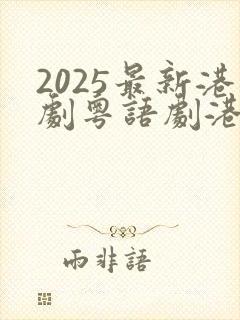 2025最新港
劇粵語劇港
雨非語